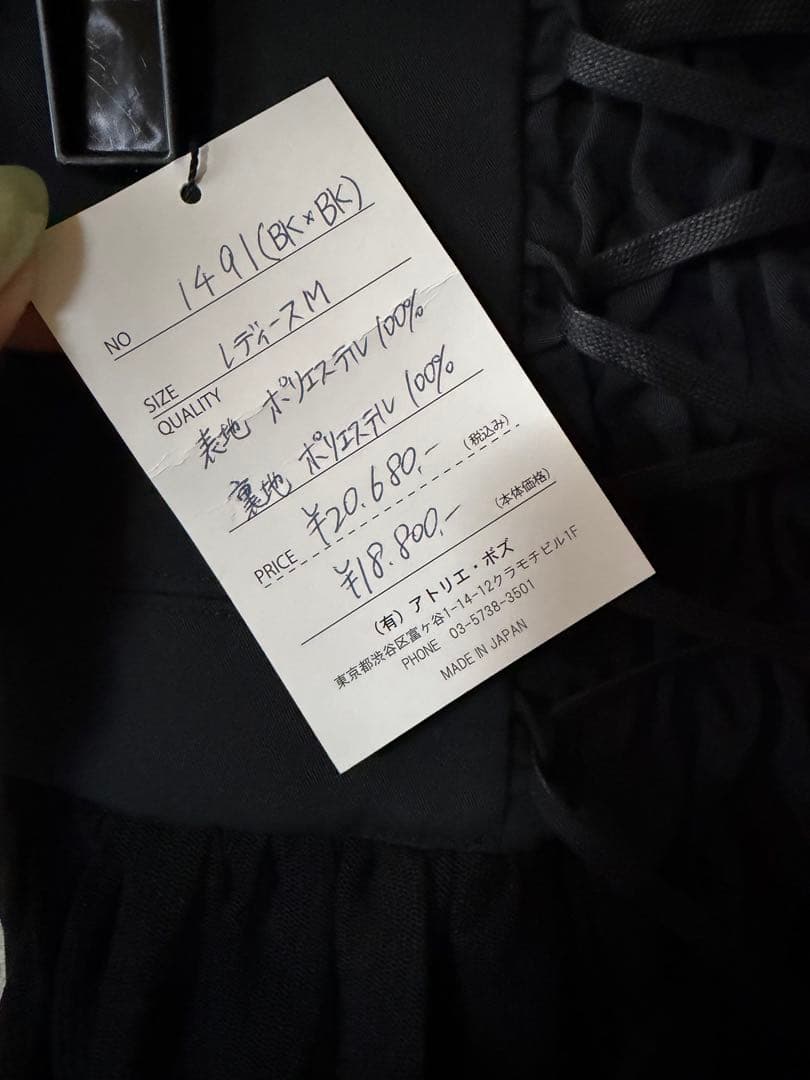 NO 1491(BK×BK)
SIZE レディースM
QUALITY
表地 ポリエステル 100%
裏地 ポリエステル 100%
¥20.680.- (税込み)
PRICE
¥18.800.- (本体価格)
(有) アトリエ・ボズ
東京都渋谷区富ヶ谷1-14-12クラモチビル1F
PHONE 03-5738-3501
MADE IN JAPAN